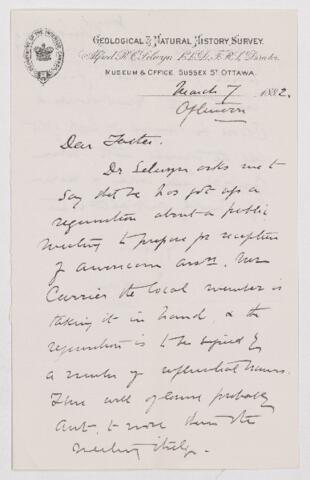 DEPARTMENT OF THE INTERIOR CANADA
GEOLOGICAL & NATURAL HISTORY SURVEY.
Alfred R. C. Selwyn L.L.D., F.R.S., Director.
MUSEUM & OFFICE. SUSSEX ST. OTTAWA.
March 7 1882.
Afternoon
Dear Foster.
Dr Selwyn asks me to
say that he has got up a
requisition about a public
meeting to prepare for reception
of American assn.
Currier the local member is
taking it in hand, & the
requisition is to be signed by
a number of influential names.
Time will of course probably
meeting itself.